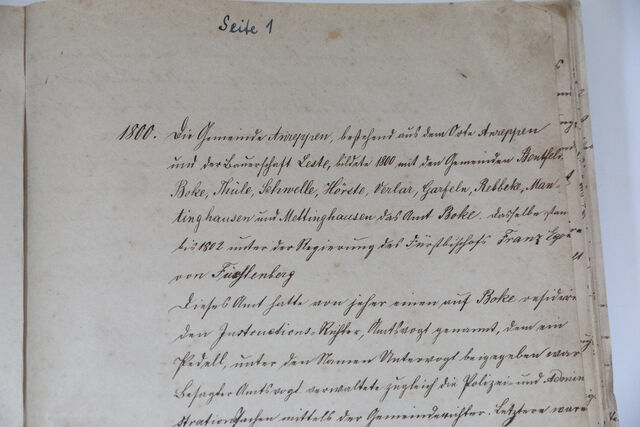 Seite 1
1800. Die Gemeinde Anreppen, bestehend aus dem Orte Anreppen
und der Bauerschaft Leste, bildete 1800 mit den Gemeinden Bentfeld
Boke, Thüle, Schwelle, Hörste, Verlar, Garfeln, Rebbeke, Man-
tinghausen und Mettinghausen das Amt Boke. Dasselbe stan
bis 1802 unter der Regierung des Fürstbischofs Franz Ego
von Fürstenberg
Dieses Amt hatte von jeher einen auf Boke residire
den Instructions-Richter, Amtsvogt genannt, dem ein
Pedell, unter den Namen Untervogt beigegeben war
Besagter Amtsvogt verwaltete zugleich die Polizei- und Admin
strationssachen mittels der Gemeinderichter. Letztere ware